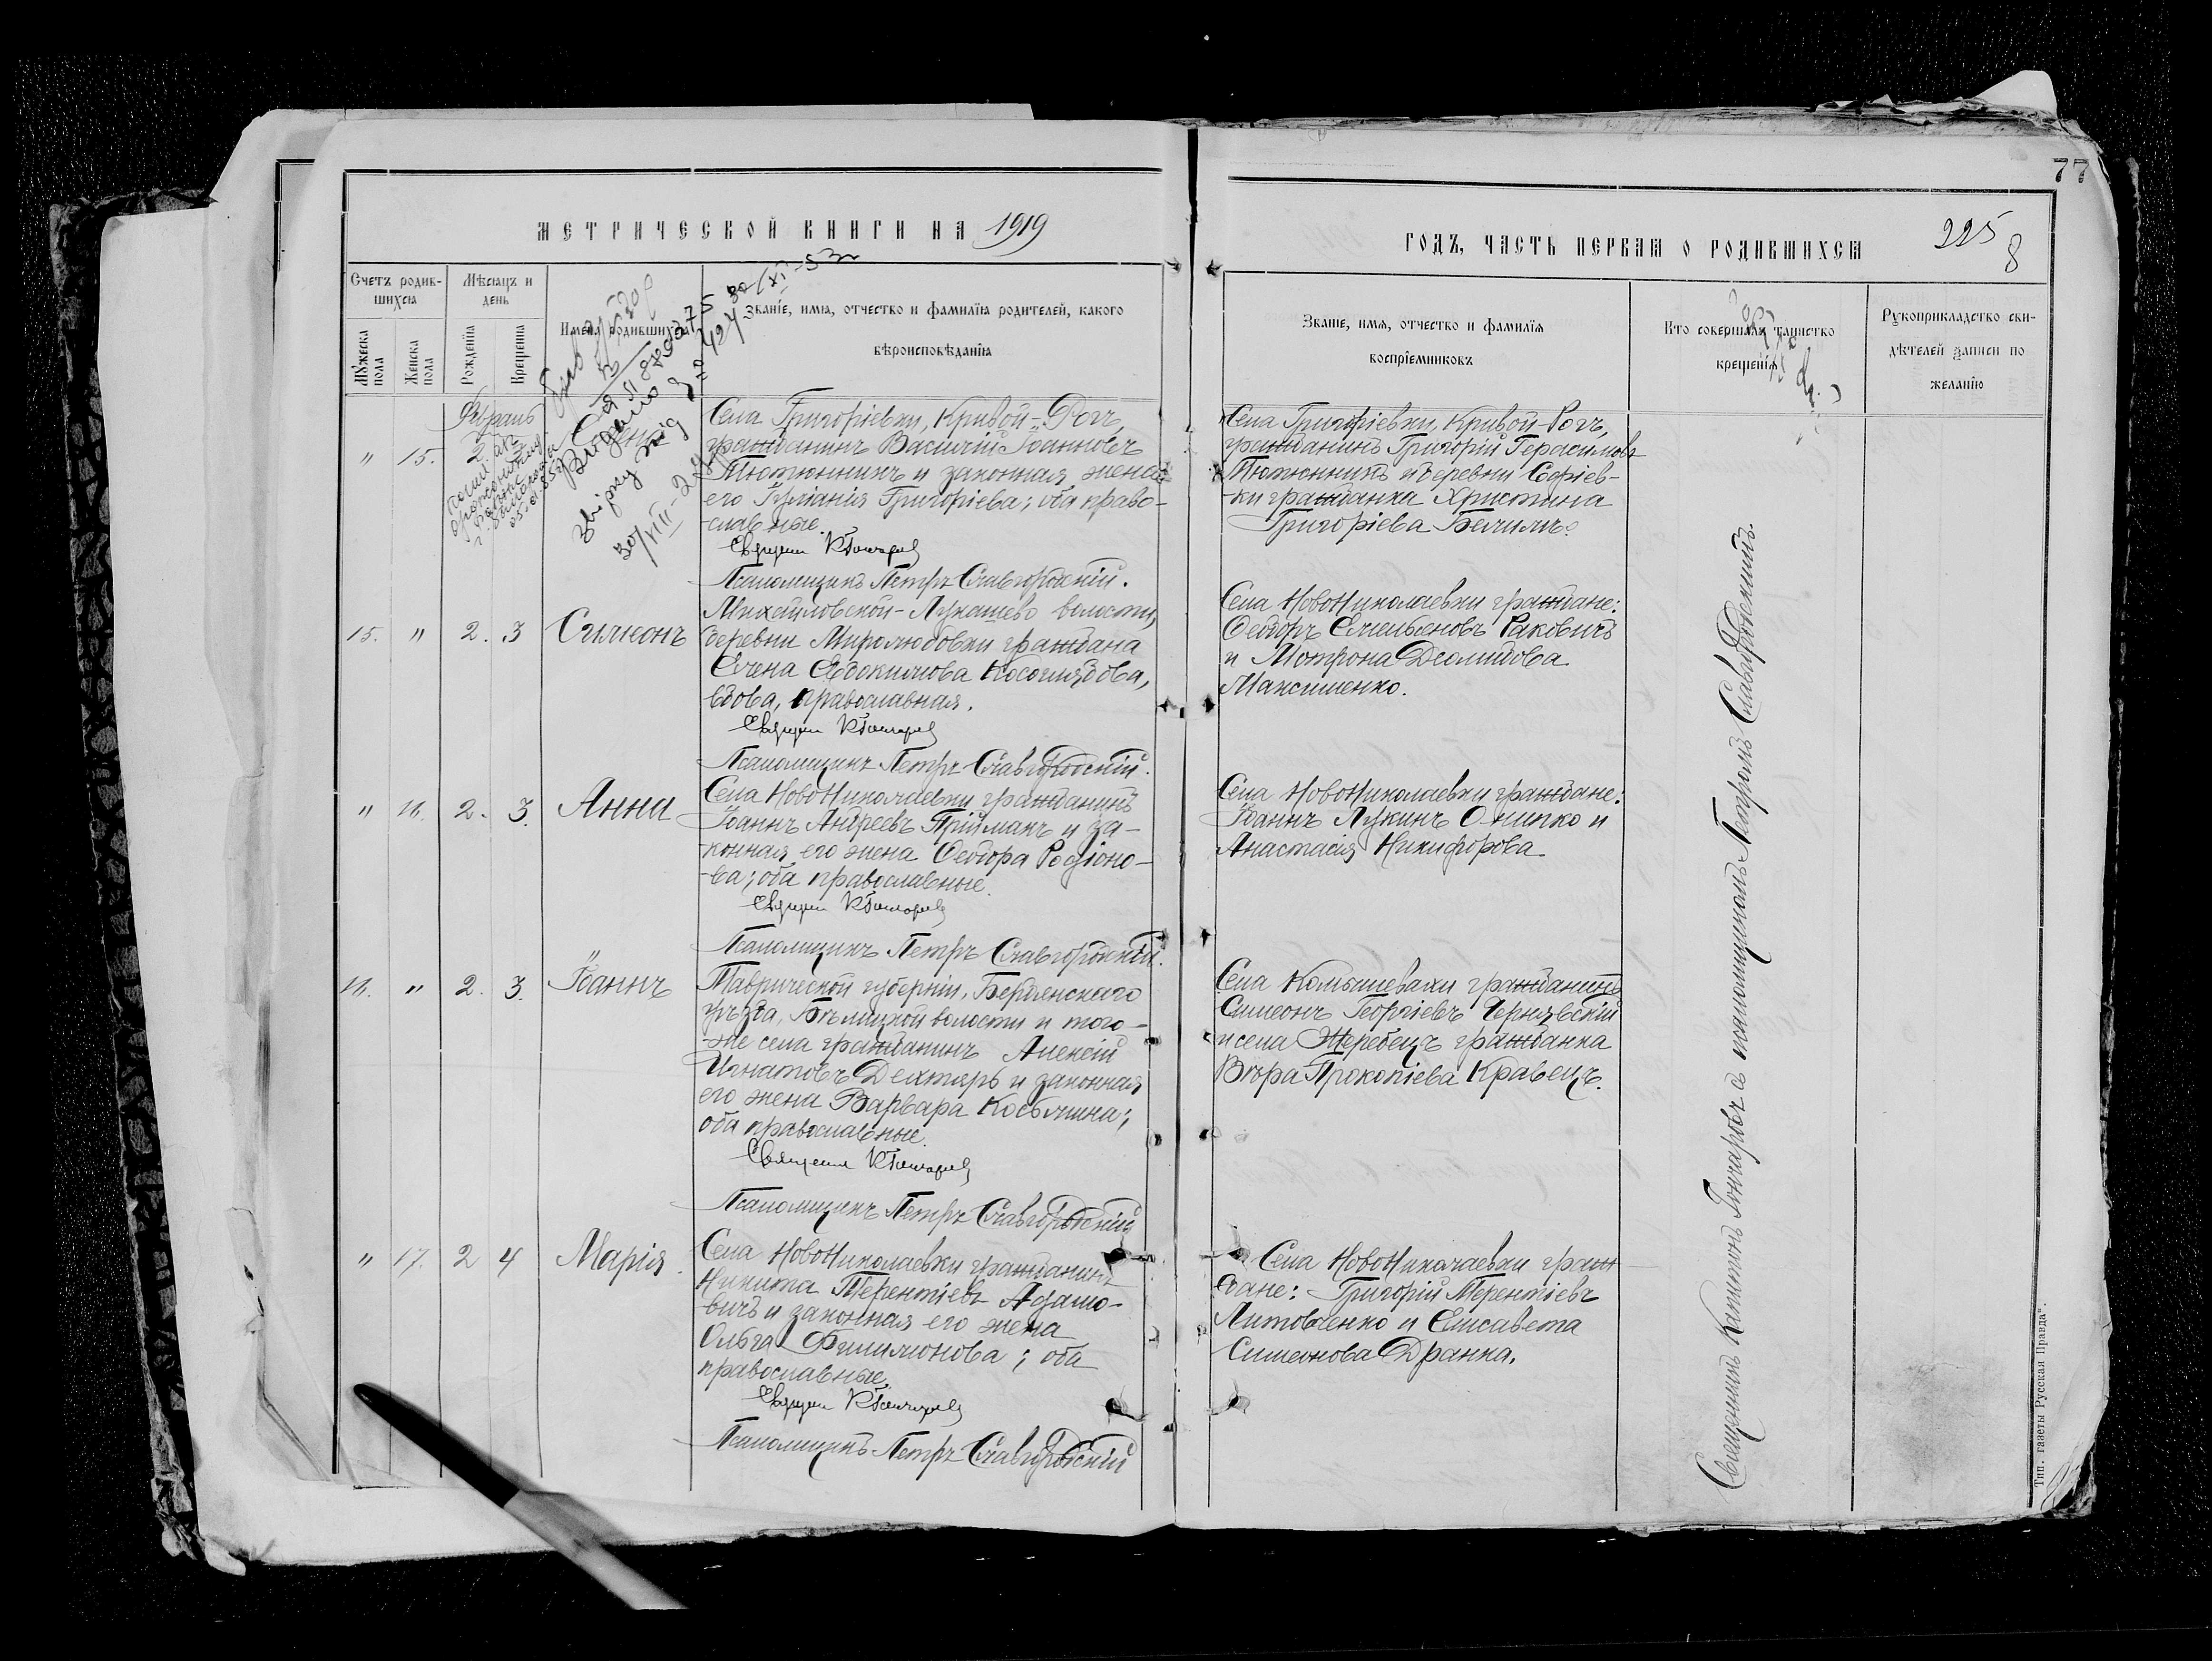 77
МЕТРИЧЕСКОЙ КНИГИ НА 1919
ГОДЪ, ЧАСТЬ ПЕРВАЯ О РОДИВШИХСЯ
225
8
Счетъ родив-
шихся
Мужеска пола
Женска пола
Мѣсяцъ и
день
Рожденія
Крещенія
Имена родившихся
Званіе, имя, отчество и фамилія родителей, какого
вѣроисповѣданія
Званіе, имя, отчество и фамилія
воспріемниковъ
Кто совершалъ таинство
крещенія
Рукоприкладство сви-
дѣтелей записи по
желанію
Февраль
" 15. 2.
Села Григоріевки, Кривой-Рогъ,
гражданинъ Василій Іоанновъ
Тютюнникъ и законная жена
его Іуліанія Григоріева; оба право-
славные.
Священ К Гончаровъ
Псаломщикъ Петръ Славгородскій.
Села Григоріевки, Кривой-Рогъ,
гражданинъ Григорій Герасимовъ
Тютюнникъ и деревни Софіев-
-ки гражданка Христина
Григоріева
15. " 2. 3 Симеонъ
Михайловской-Лукашево волости,
деревни Миролюбовки граждана
Елена Евдокимова Косоглядова,
вдова, православная.
Священ К Гончаровъ
Псаломщикъ Петръ Славгородскій.
Села НовоНиколаевки граждане:
Ѳеодоръ Емельяновъ Раковичъ
и Мотрона Деомидова
Максименко.
" 16. 2. 3. Анна
Села НовоНиколаевки гражданинъ
Іоаннъ Андреевъ Прійманъ и за-
-конная его жена Ѳеодора Родіоно-
-ва; оба православные.
Священ К Гончаровъ
Псаломщикъ Петръ Славгородскій.
Села НовоНиколаевки граждане:
Іоаннъ Лукинъ Онипко и
Анастасія Никифорова
16. " 2. 3. Іоаннъ
Таврической губерніи, Бердянскаго
уѣзда, волости и того-
-же села гражданинъ Алексій
Игнатовъ Дехтярь и законная
его жена Варвара Косьмина;
оба православные.
Священ К Гончаровъ
Псаломщикъ Петръ Славгородскій
Села Комышевахи гражданинъ
Симеонъ Георгіевъ Чернявскій
и села Жеребецъ гражданка
Вѣра Прокопіева Кравецъ.
" 17. 2 4 Марія.
Села НовоНиколаевки гражданинъ
Никита Терентіевъ Адамо-
-вичъ и законная его жена
Ольга Филимонова; оба
православные.
Священ К Гончаровъ
Псаломщикъ Петръ Славгородскій
Села НовоНиколаевки граж-
дане: Григорій Терентіевъ
Литовченко и Елисавета
Симеонова Дранка.
Священникъ Капитонъ Гончаровъ съ псаломщикомъ Петромъ Славгородскимъ.
Тип. газеты Русская Правда".